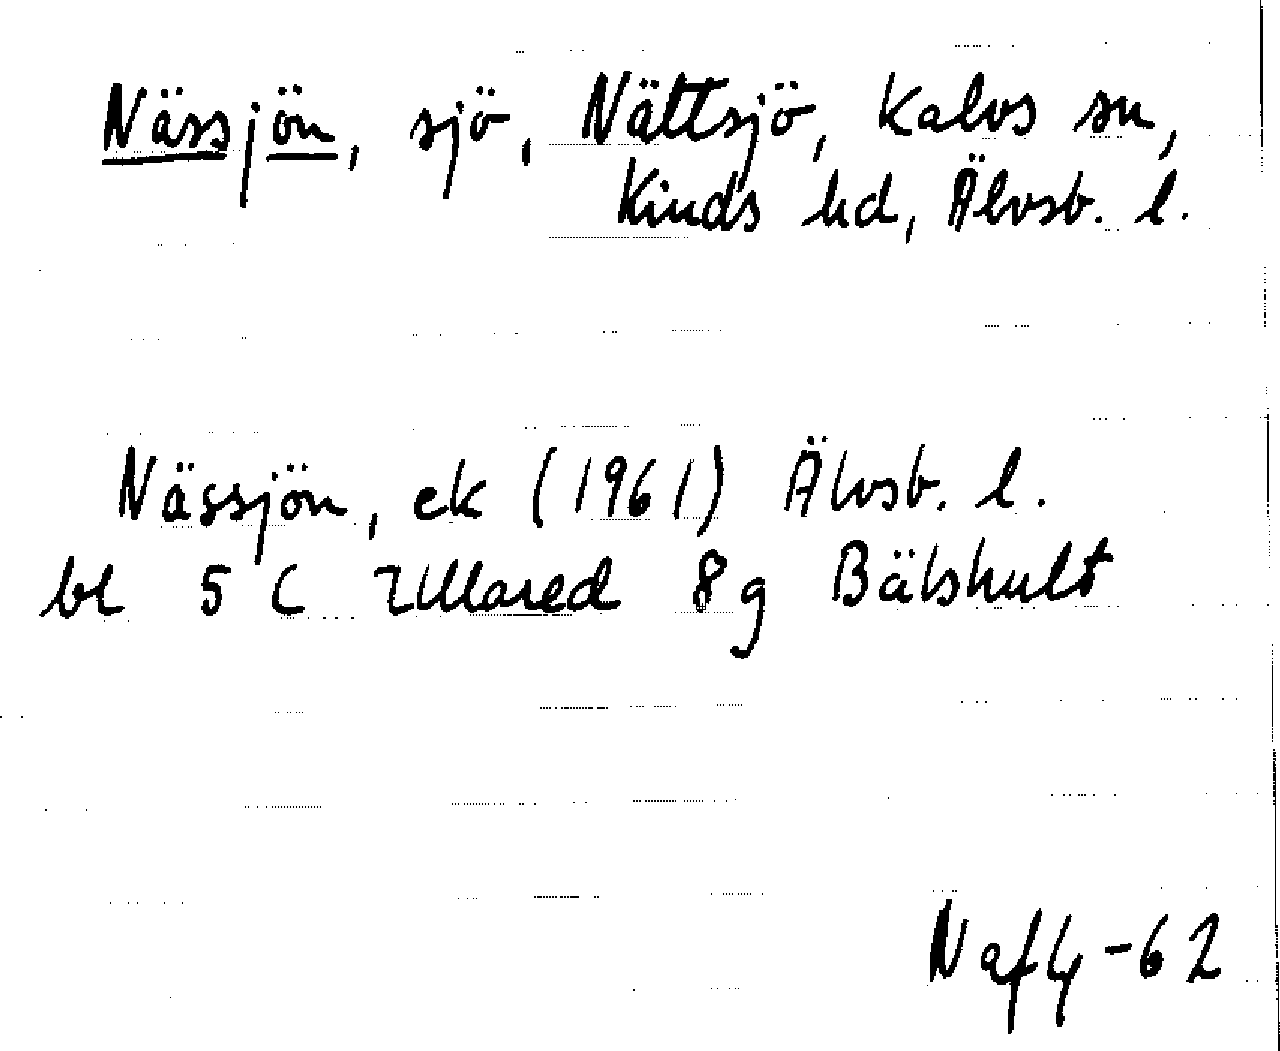 Nässjön, sjö, Nättsjö, Kalvs sn,
Kinds hd, Älvsb. l.
Nässjön, ek (1961) Älvsb. l.
bl 5 C Ullared 8 g Bälshult
N af 4 - 62